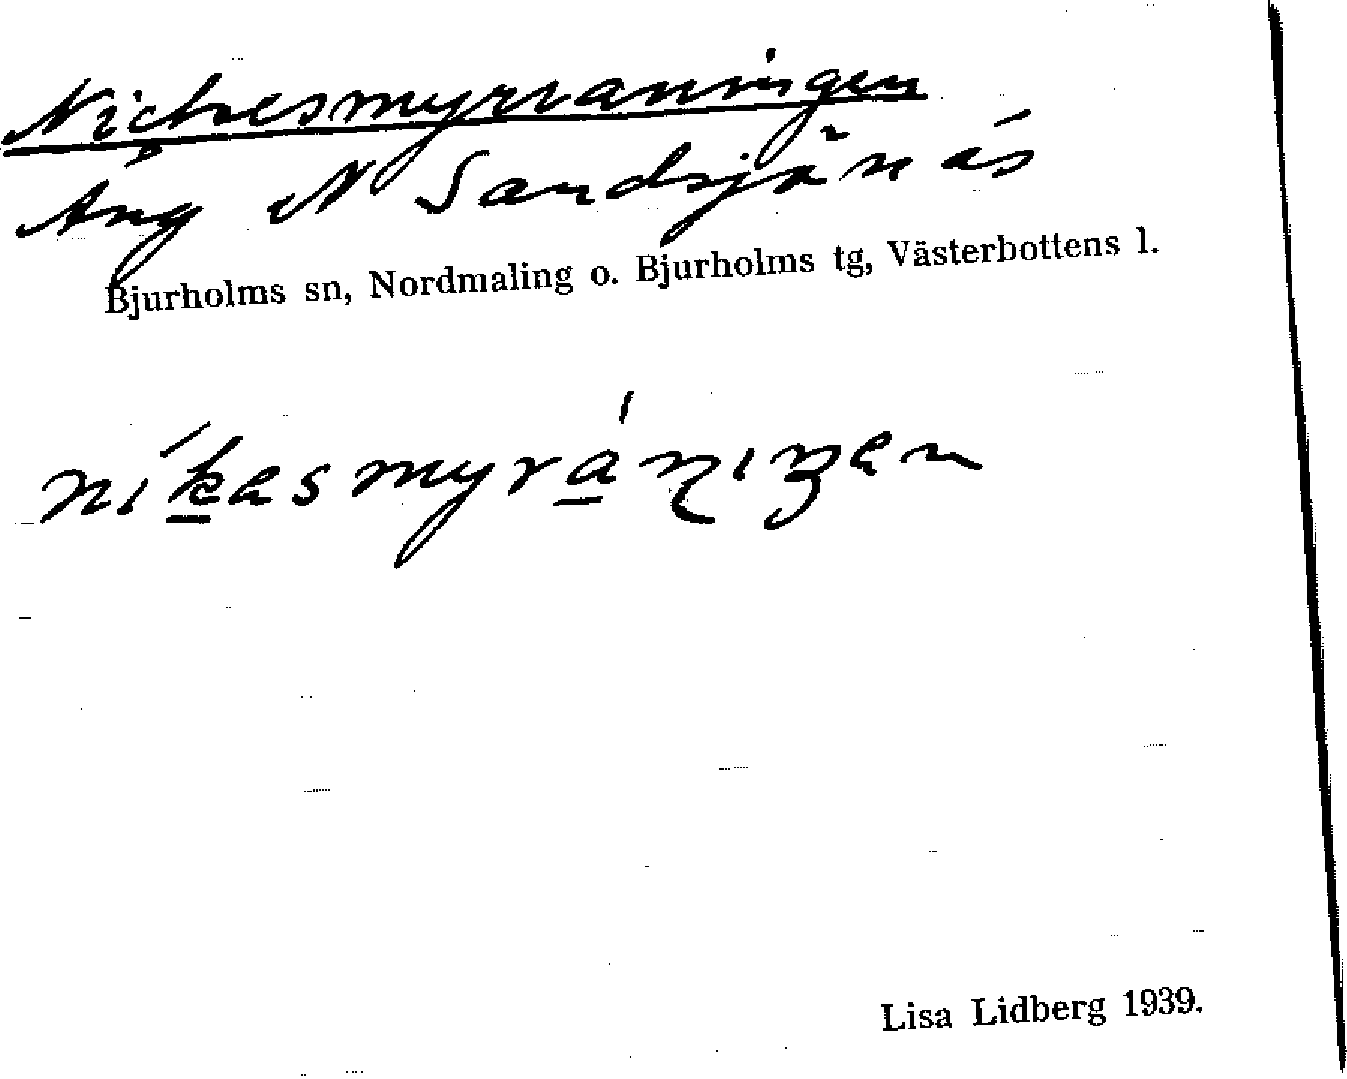 Nickesmyrraningen
Äng N Sandsjönäs
Bjurholms sn, Nordmaling o. Bjurholms tg, Västerbottens l.
Lisa Lidberg 1939.